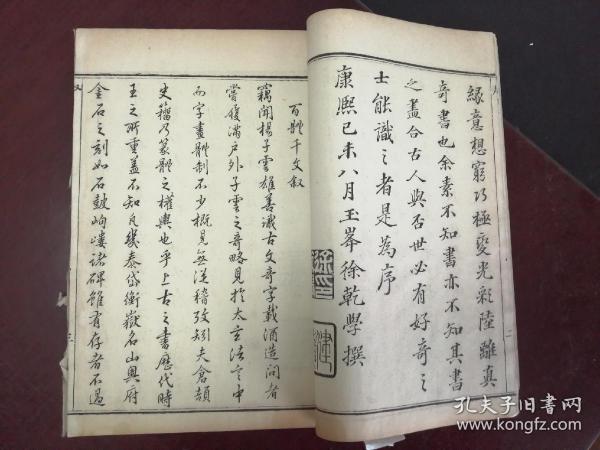 緣意想窮巧極變光彩陸離真
奇書也余素不知書亦不知其書
之盡合古人與否世必有好奇之
士能識之者是為序
康熙己未八月玉峯徐乾學撰
百體千文叙
竊聞楊子雲雄善識古文奇字載酒造問者
嘗履滿戶外子雲之奇略見於太玄法言中
而字畫體制不少概見無從稽攷矧夫倉頡
史籀乃篆體之權輿也乎上古之書歷代時
王之所重蓋不知凡幾泰岱衡嶽名山奧府
金石之刻如石鼓岣嶁諸碑雖有存者不過
二
三
孔夫子旧书网
www.kongfz.com